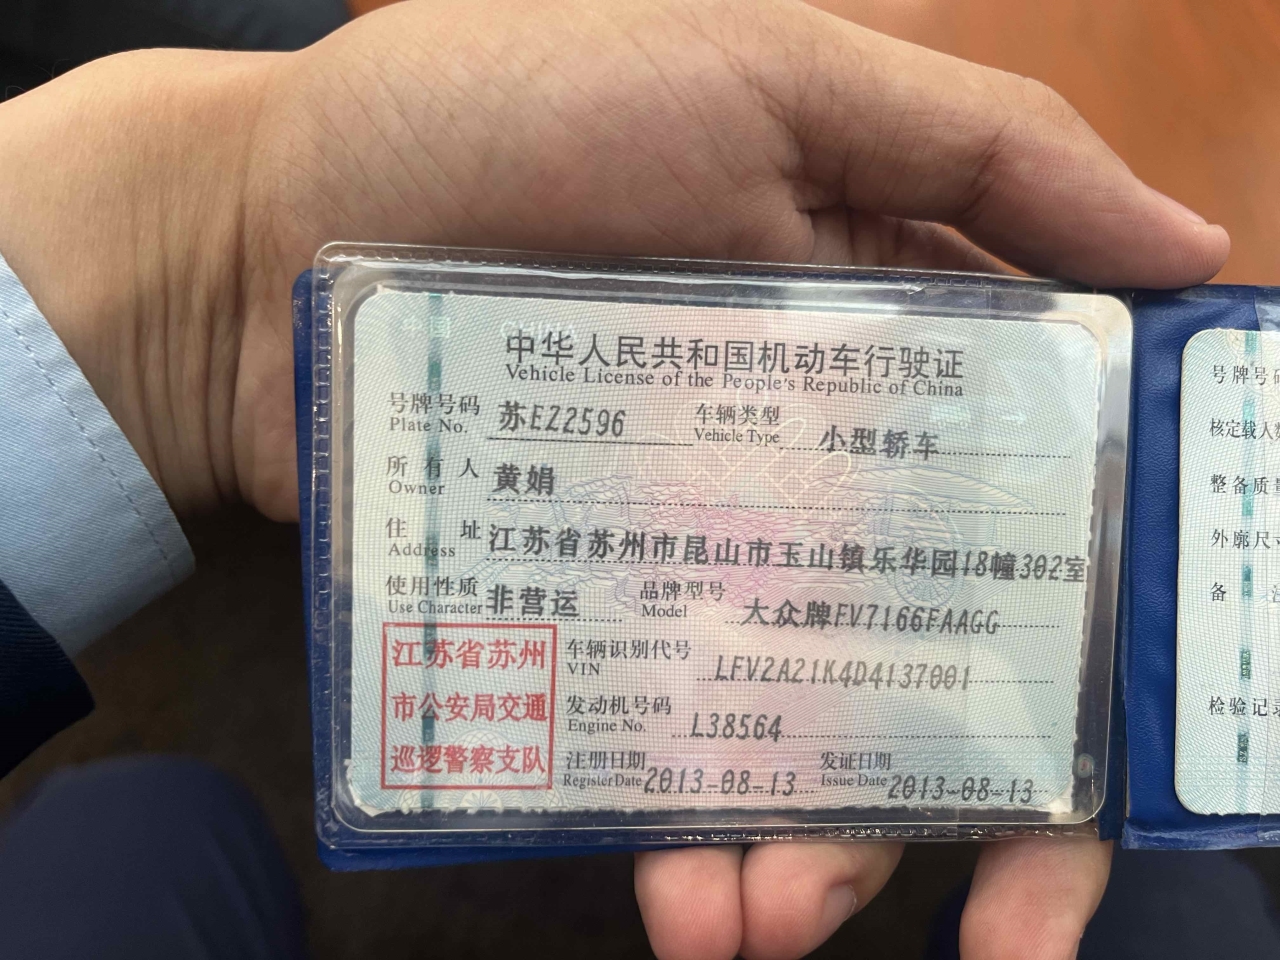 中华人民共和国机动车行驶证
Vehicle License of the People's Republic of China
号牌号码 苏EZ2596 车辆类型 小型轿车
Plate No. Vehicle Type
所有人 黄娟
Owner
住址 江苏省苏州市昆山市玉山镇乐华园18幢302室
Address
使用性质 非营运 品牌型号 大众牌FV7166FAAGG
Use Character Model
江苏省苏州
市公安局交通
巡逻警察支队
车辆识别代号 LFV2A21K4D4137001
VIN
发动机号码 L38564
Engine No.
注册日期 2013-08-13 发证日期 2013-08-13
Register Date Issue Date
号牌号码
核定载人数
整备质量
外廓尺寸
备
检验记录